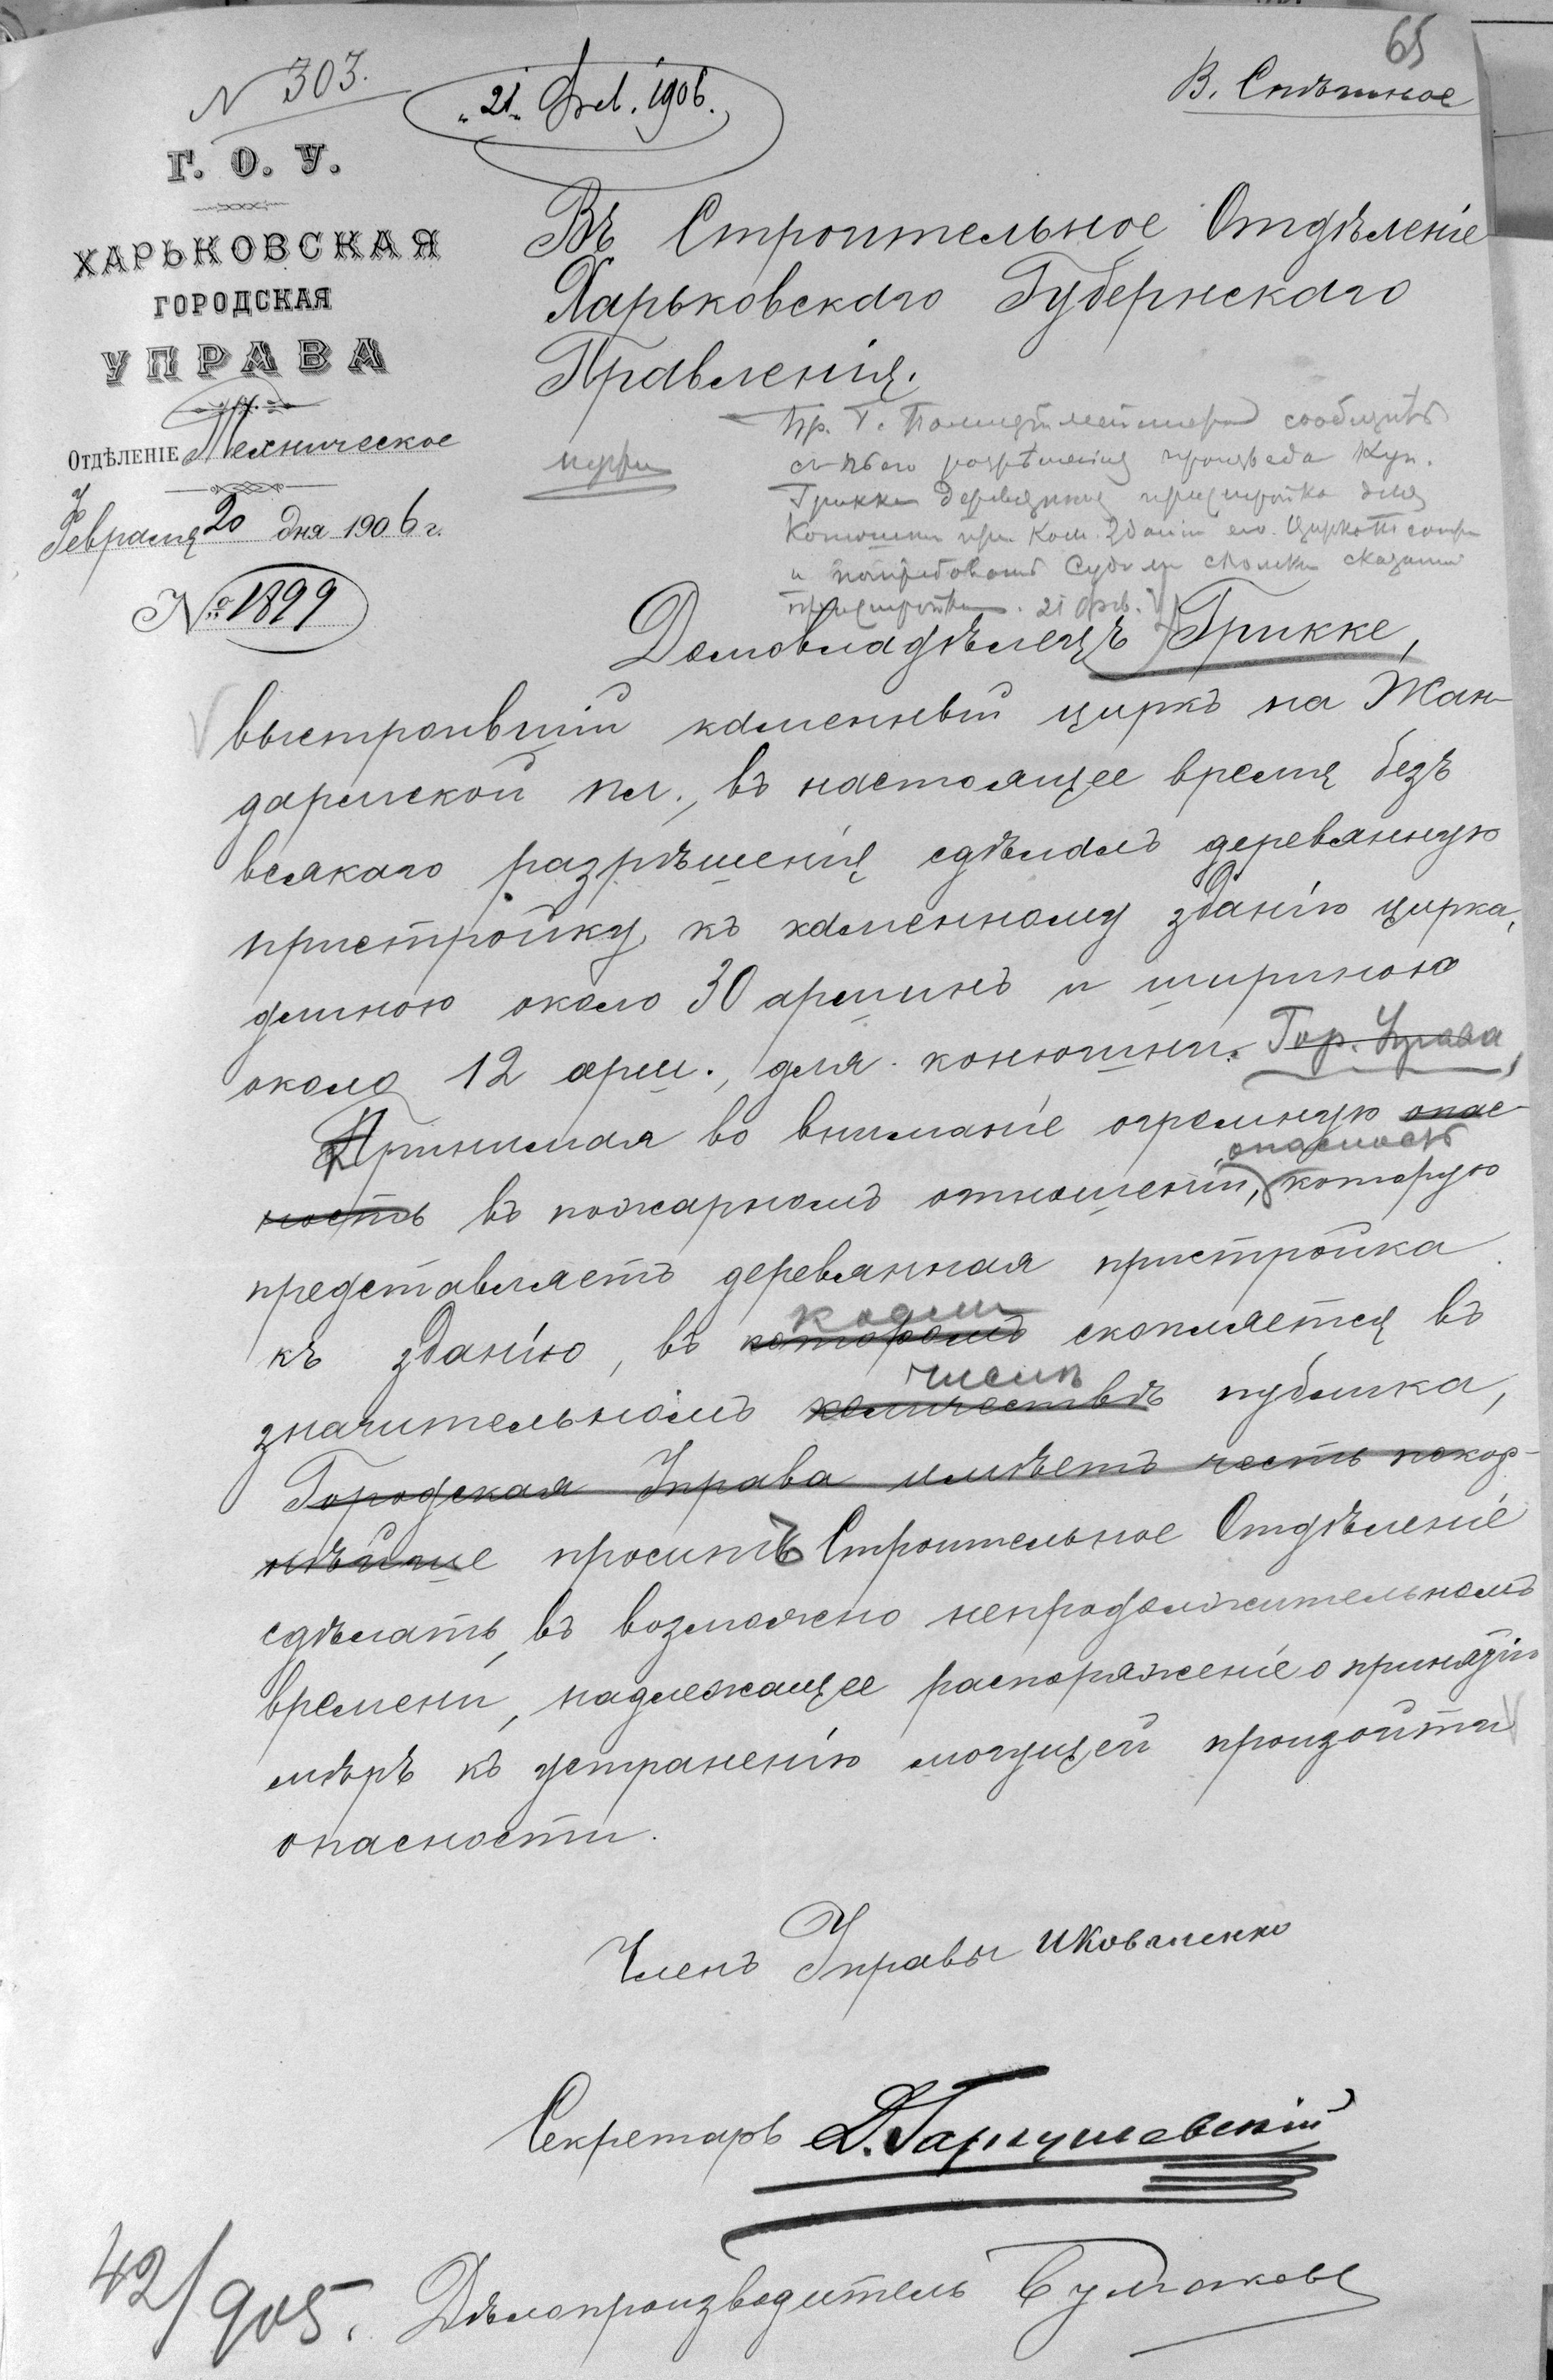 65
N 303.
"21" Фев. 1906.
В. Спѣшное
Г. О. У.
ХАРЬКОВСКАЯ
ГОРОДСКАЯ
УПРАВА
Отдѣленіе Техническое
Февраля 20 дня 1906 г.
№ 1899
Въ Строительное Отдѣленіе
Харьковскаго Губернскаго
Правленія.
Пр. Г. Полицiймейстера сообщить
съ чьего разрѣшенія произведена Куп.
Грикке деревянная пристройка для
Конюшни при Кам. зданіи его Цирка
и потребовать
пристройки. 21 Фев.
Домовладѣлецъ Грикке,
выстроившій каменный циркъ на Жан-
дармской пл., въ настоящее время безъ
всякаго разрѣшенія сдѣлалъ деревянную
пристройку къ каменному зданію цирка,
длиною около 30 аршинъ и шириною
около 12 арш., для конюшни. Гор. Управа,
Принимая во вниманіе огромную опас-
опасность
ность въ пожарномъ отношеніи, которую
представляетъ деревянная пристройка
къ зданію, въ которомъ скопляется въ
коемъ
числѣ
значительномъ количествѣ публика,
Городская Управа имѣетъ честь покор-
нѣйше проситъ Строительное Отдѣленіе
сдѣлать, въ возможно непродолжительномъ
времени, надлежащее распоряженіе о принятіи
мѣръ къ устраненію могущей произойти
опасности.
Членъ Управы И Коваленко
Секретарь Д.
Дѣлопроизводитель
42/905.